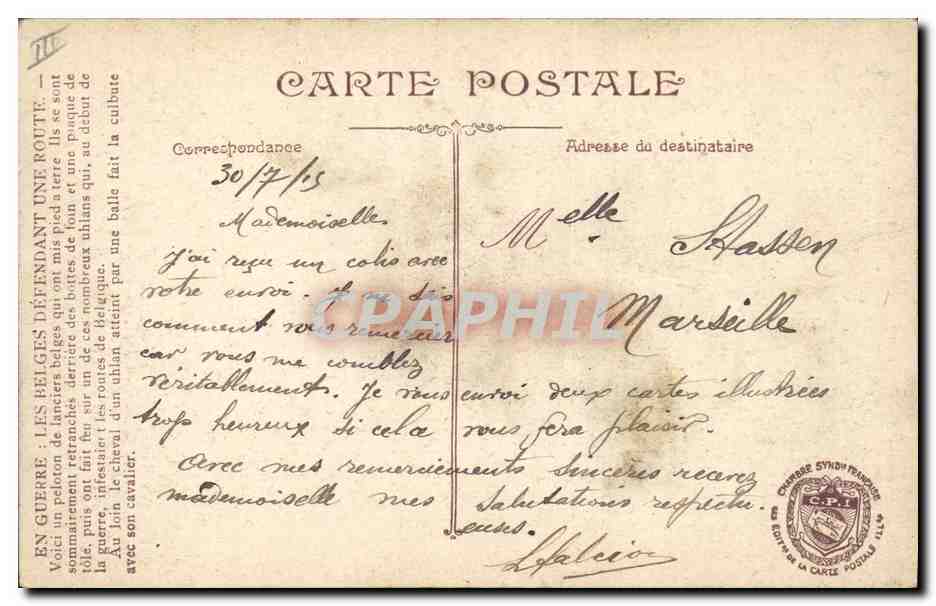 CARTE POSTALE
Correspondance
Adresse du destinataire
30/7/15
Mademoiselle
J'ai reçu un colis avec
votre envoi. Je ne sais
comment vous remercier
car vous me comblez
véritablement. Je vous envoi deux cartes illustrées
trop heureux si cela vous fera plaisir.
Avec mes remerciements sincères recevez
mademoiselle mes salutations respectu-
euses.
Melle Stassen
Marseille
EN GUERRE : LES BELGES DÉFENDANT UNE ROUTE. —
Voici un peloton de lanciers belges qui ont mis pied a terre Ils se sont
sommairement retranchés derrière des bottes de foin et une plaque de
tôle, puis ont fait feu sur un de ces nombreux uhlans qui, au début de
la guerre, infestaient les routes de Belgique.
Au loin le cheval d'un uhlan atteint par une balle fait la culbute
avec son cavalier.
CHAMBRE SYNDle FRANÇAISE
C.P.I
DES EDITrs DE LA CARTE POSTALE ILLée
CPAPHIL